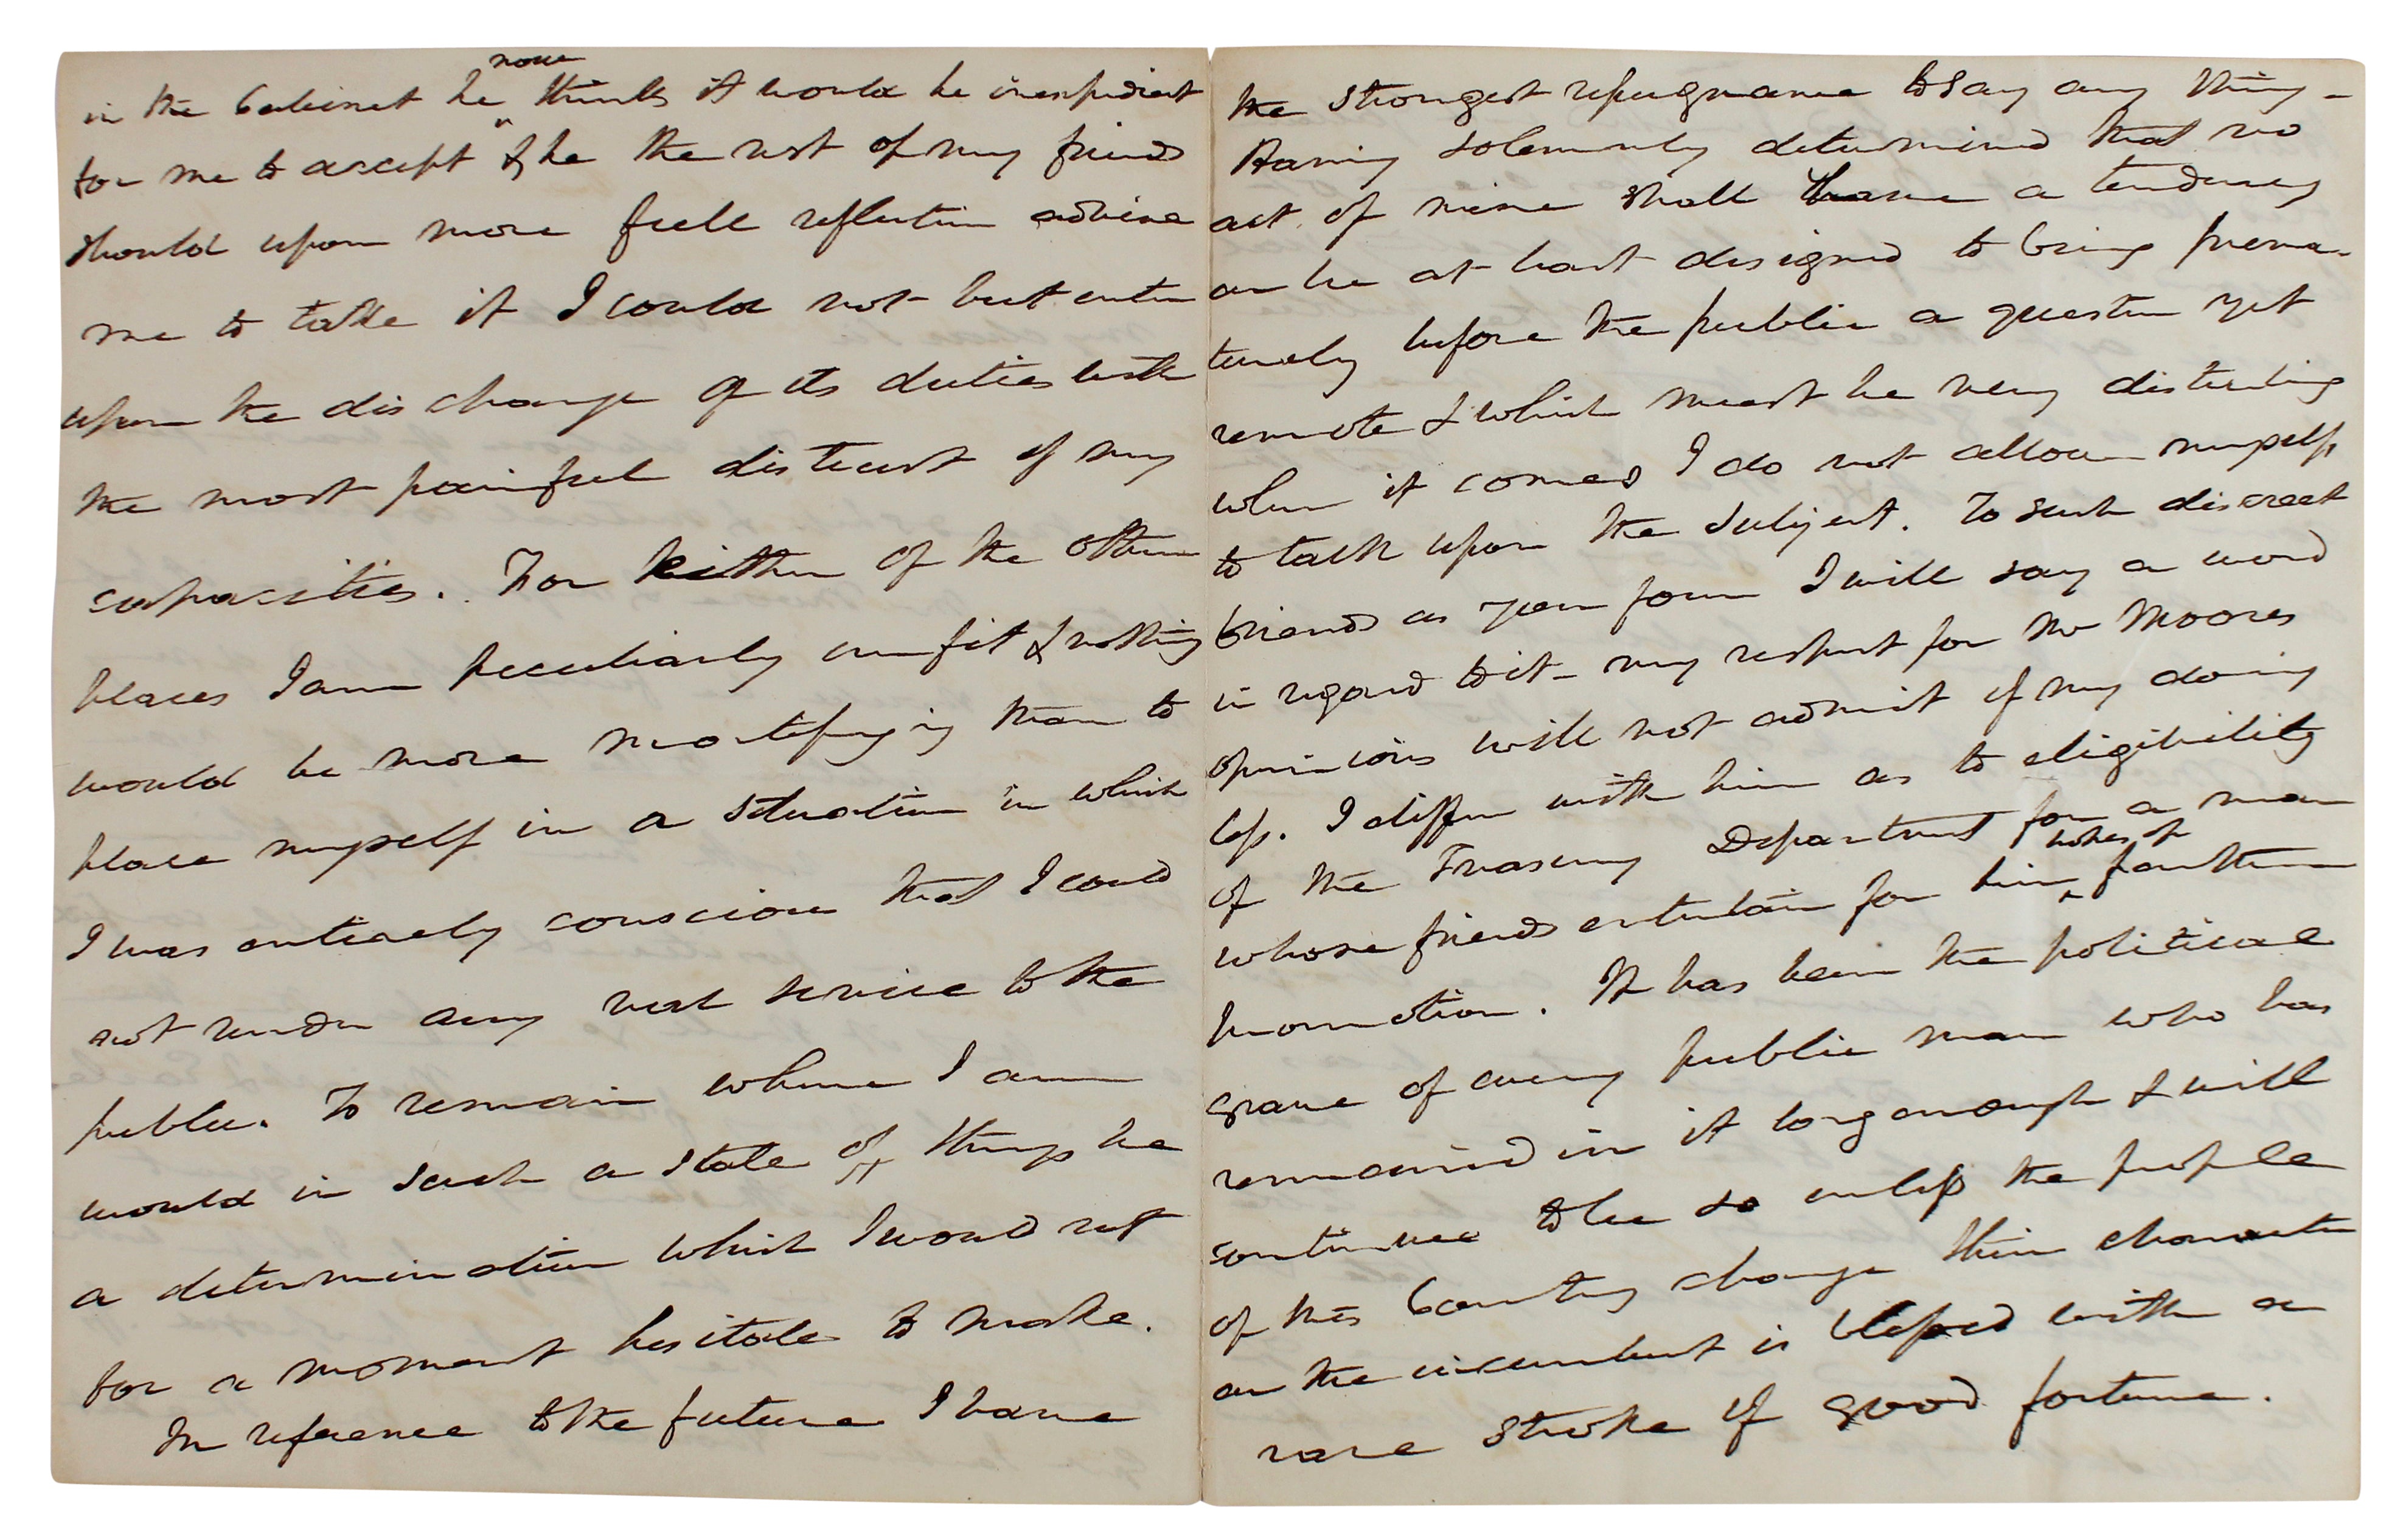 now
in the Cabinet he thinks it would be inexpedient
for me to accept & he the rest of my friends
should upon more full reflection advise
me to take it I could not but enter
upon the discharge of its duties with
the most painful distrust of my
capacities. For either of the other
places I am peculiarly unfit & nothing
would be more mortifying than to
place myself in a situation in which
I was entirely conscious that I could
not render any real service to the
public. To remain where I am
would in such a state of things be
a determination which I would not
for a moment hesitate to make.
In reference to the future I have
the strongest repugnance to say any thing -
Having solemnly determined that no
act of mine shall have a tendency
or be at least designed to bring prema-
turely before the public a question yet
remote & which must be very disturbing
when it comes I do not allow myself
to talk upon the subject. To such discreet
friends as you four I will say a word
in regard to it - my respect for Mr Moores
opinions will not admit of my doing
less. I differ with him as to eligibility
of the Treasury Department for a man
hopes of
whose friends entertain for him further
promotion. It has been the political
grave of every public man who has
remained in it long enough & will
continue to be so unless the people
of this Country change their character
or the incumbent is blessed with a
rare stroke of good fortune.